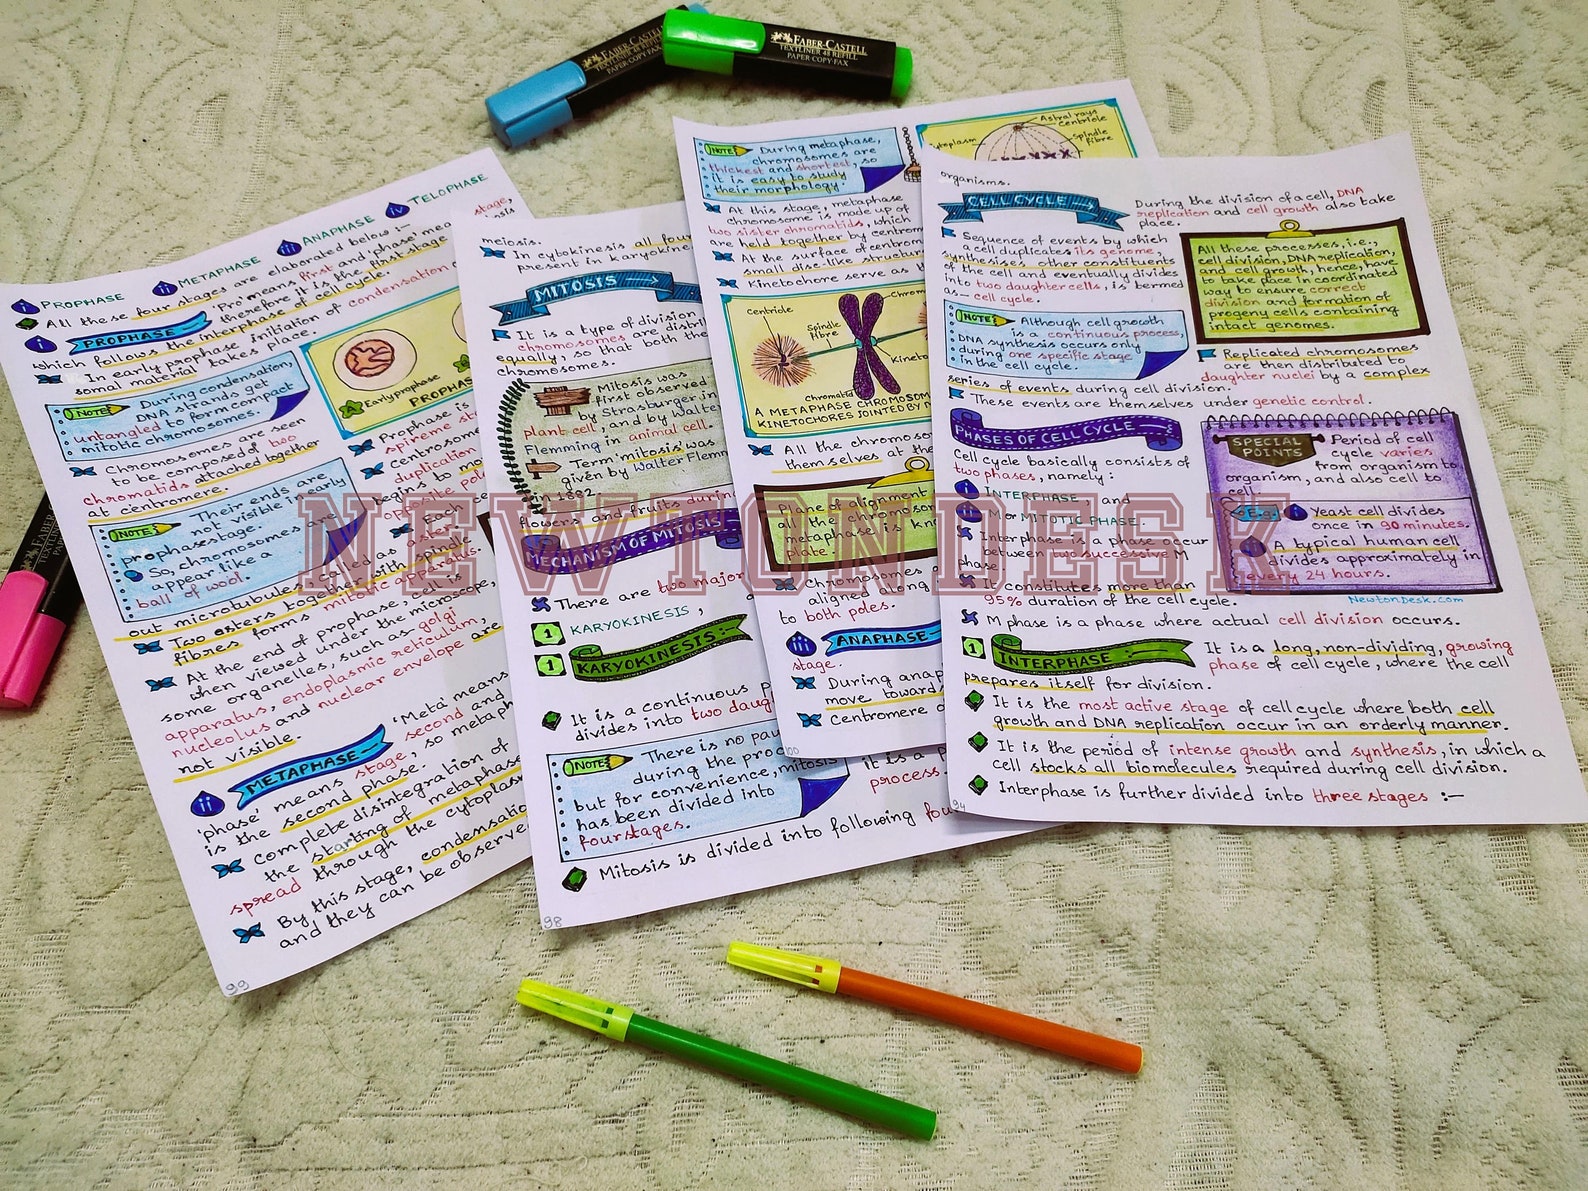 FABER-CASTELL
TEXTLINER 48 REFILL
PAPER·COPY·FAX
FABER-CASTELL
TEXTLINER 48 REFILL
PAPER·COPY·FAX
FABER-CASTELL
NEWTONDESK
i PROPHASE ii METAPHASE iii ANAPHASE iv TELOPHASE
All these four stages are elaborated below :—
i PROPHASE 'Pro' means first and 'phase' means stage,
therefore it is the first stage
which follows the interphase of cell cycle.
In early prophase, initiation of condensation
somal material takes place.
NOTE During condensation,
DNA strands get
untangled to form compact
mitotic chromosomes.
Chromosomes are seen
to be composed of two
chromatids attached together
at centromere.
NOTE Their ends are
not visible in early
prophase stage.
So, chromosomes are
appear like a
ball of wool.
A Early prophase
PROPHASE
Prophase is
spireme
Centrosome
duplication
begins to
opposite poles
Each
out microtubules called as aster.
Two asters together with spindle
fibres forms mitotic apparatus.
At the end of prophase, cell is
when viewed under the microscope,
some organelles, such as golgi
apparatus, endoplasmic reticulum,
nucleolus and nuclear envelope are
not visible.
ii METAPHASE 'Meta' means
'phase', means stage, second and
is the second phase. so metaphase
Complete disintegration of
the starting of metaphase
spread through the cytoplasm
By this stage, condensation
and they can be observed
99
meiosis.
In cytokinesis all four
present in karyokinesis
MITOSIS
It is a type of division
chromosomes are distri
equally, so that both the
chromosomes.
Mitosis was
first observed
by Strasburger in
plant cell, and by Walter
Flemming in animal cell.
Term 'mitosis' was
given by Walter Flemm
in 1882.
flowers and fruits during
MECHANISM OF MITOSIS
There are two major
KARYOKINESIS,
1 KARYOKINESIS:-
It is a continuous p
divides into two daug
NOTE There is no pau
during the proc
but for convenience, mitosis
has been divided into
four stages.
it is a
process
Mitosis is divided into following fou
98
NOTE During metaphase,
chromosomes are
thickest and shortest, so
it is easy to study
their morphology.
Astral rays
Centriole
Cytoplasm
Spindle
fibre
At this stage, metaphase
chromosome is made up of
two sister chromatids, which
are held together by centrom
At the surface of centrom
small disc-like structur
Kinetochore serve as
Centriole
Spindle
fibre
Chrom
Kineto
Chromatid
A METAPHASE CHROMOSOM
KINETOCHORES JOINTED BY
All the chromoso
themselves at the
Plane of alignment
all the chromosom
metaphase is kno
plate.
Chromosomes a
aligned along
to both poles.
iii ANAPHASE—
stage.
During anap
move toward
Centromere
100
organisms.
CELL CYCLE
During the division of a cell, DNA
replication and cell growth also take
place.
Sequence of events by which
a cell duplicates its genome,
synthesises other constituents
of the cell and eventually divides
into two daughter cells, is termed
as— cell cycle.
All these processes, i.e.,
cell division, DNA replication,
and cell growth, hence, have
to take place in coordinated
way to ensure correct
division and formation of
progeny cells containing
intact genomes.
NOTE Although cell growth
is a continuous process,
DNA synthesis occurs only
during one specific stage
in the cell cycle.
Replicated chromosomes
are then distributed to
daughter nuclei by a complex
series of events during cell division.
These events are themselves under genetic control.
PHASES OF CELL CYCLE
Cell cycle basically consists of
two phases, namely:
i INTERPHASE, and
ii M or MITOTIC PHASE.
Interphase is a phase occur
between two successive M
phase.
It constitutes more than
95% duration of the cell cycle.
SPECIAL
POINTS
Period of cell
cycle varies
from organism to
organism, and also cell to
cell.
E.g. i Yeast cell divides
once in 90 minutes.
A typical human cell
divides approximately in
every 24 hours.
NewtonDesk.com
M phase is a phase where actual cell division occurs.
1 INTERPHASE :- It is a long, non-dividing, growing
phase of cell cycle, where the cell
prepares itself for division.
It is the most active stage of cell cycle where both cell
growth and DNA replication occur in an orderly manner.
It is the period of intense growth and synthesis, in which a
cell stocks all biomolecules required during cell division.
Interphase is further divided into three stages :—
94